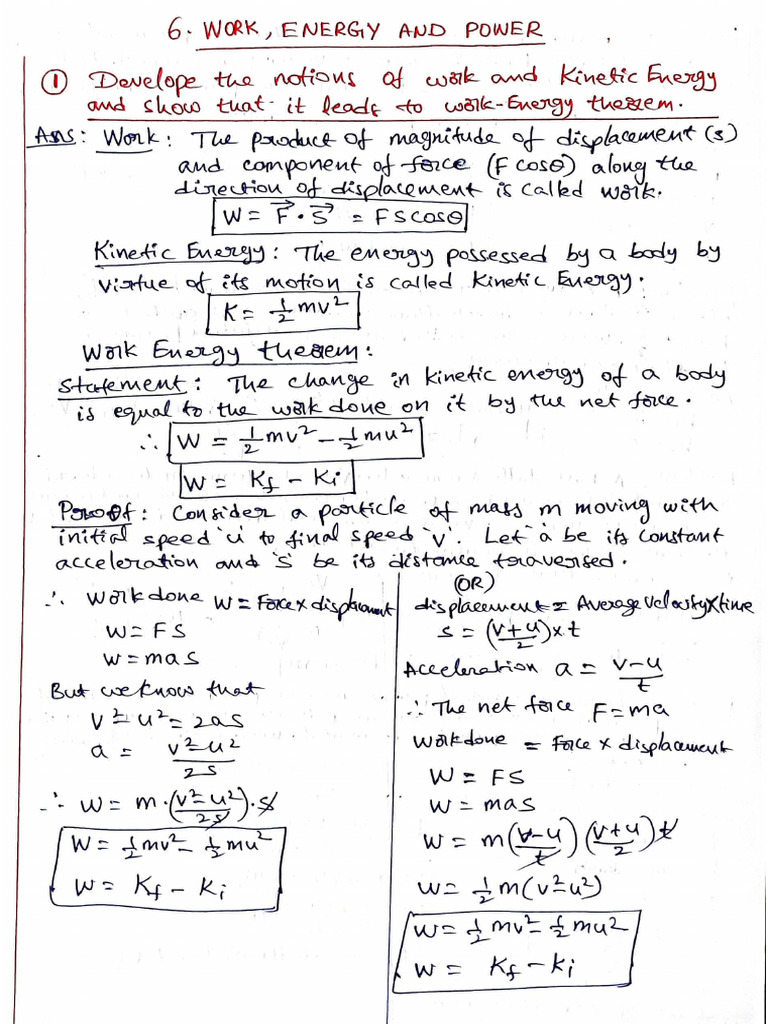 6. WORK, ENERGY AND POWER
① Develope the notions of work and Kinetic Energy
and show that it leads to work-Energy theorem.
Ans: Work: The product of magnitude of displacement (s)
and component of force (F cosθ) along the
direction of displacement is called work.
W = F⃗ · S⃗ = F S cosθ
Kinetic Energy: The energy possessed by a body by
virtue of its motion is called Kinetic Energy.
K = ½ mv²
Work Energy theorem:
Statement: The change in kinetic energy of a body
is equal to the work done on it by the net force.
∴ W = ½ mv² – ½ mu²
W = Kf – Ki
Proof: Consider a particle of mass m moving with
initial speed 'u' to final speed 'v'. Let 'a' be its constant
acceleration and 's' be its distance traversed.
∴ Work done W = Force × displacement
W = FS
W = mas
But we know that
v² – u² = 2as
a = (v² – u²)/2s
∴ W = m · (v² – u²)/2s · s
W = ½ mv² – ½ mu²
W = Kf – Ki
(OR)
displacement = Average velocity × time
s = (v+u)/2 × t
Acceleration a = (v–u)/t
∴ The net force F = ma
Work done = Force × displacement
W = FS
W = mas
W = m((v–u)/t)((v+u)/2)t
W = ½ m(v² – u²)
W = ½ mv² – ½ mu²
W = Kf – Ki